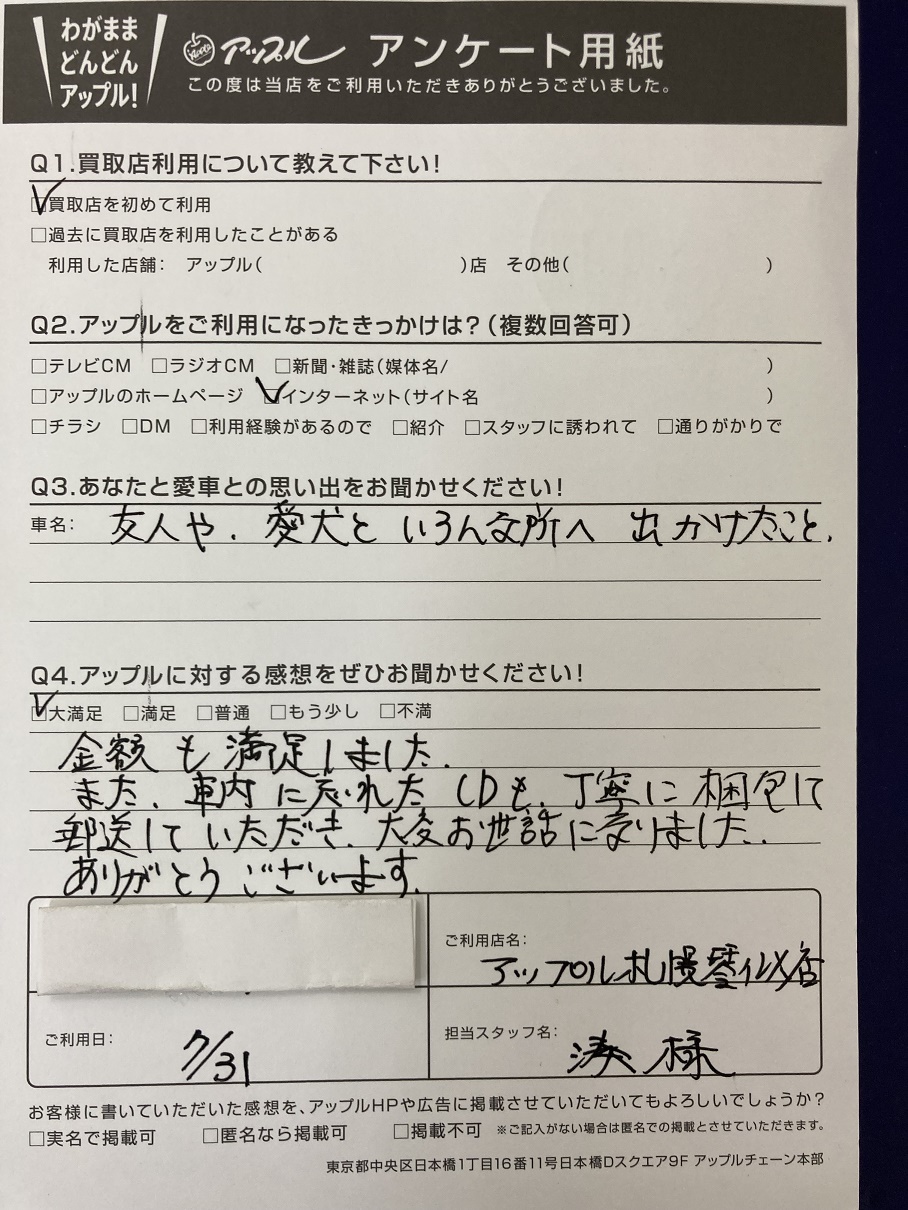 わがまま
どんどん
アップル!
アップル アンケート用紙
この度は当店をご利用いただきありがとうございました。
Q1.買取店利用について教えて下さい!
☑買取店を初めて利用
□過去に買取店を利用したことがある
利用した店舗: アップル( )店 その他( )
Q2.アップルをご利用になったきっかけは?(複数回答可)
□テレビCM □ラジオCM □新聞・雑誌(媒体名/ )
□アップルのホームページ ☑インターネット(サイト名 )
□チラシ □DM □利用経験があるので □紹介 □スタッフに誘われて □通りがかりで
Q3.あなたと愛車との思い出をお聞かせください!
車名: 友人や、愛犬と いろんな所へ 出かけたこと.
Q4.アップルに対する感想をぜひお聞かせください!
☑大満足 □満足 □普通 □もう少し □不満
金額も満足しました.
また、車内に忘れたCDも、丁寧に梱包して
郵送していただき、大変お世話になりました.
ありがとうございます.
ご利用店名:
アップル札幌琴似店
ご利用日: 7/31
担当スタッフ名: 湊様
お客様に書いていただいた感想を、アップルHPや広告に掲載させていただいてもよろしいでしょうか?
□実名で掲載可 □匿名なら掲載可 □掲載不可 ※ご記入がない場合は匿名での掲載とさせていただきます。
東京都中央区日本橋1丁目16番11号日本橋Dスクエア9F アップルチェーン本部